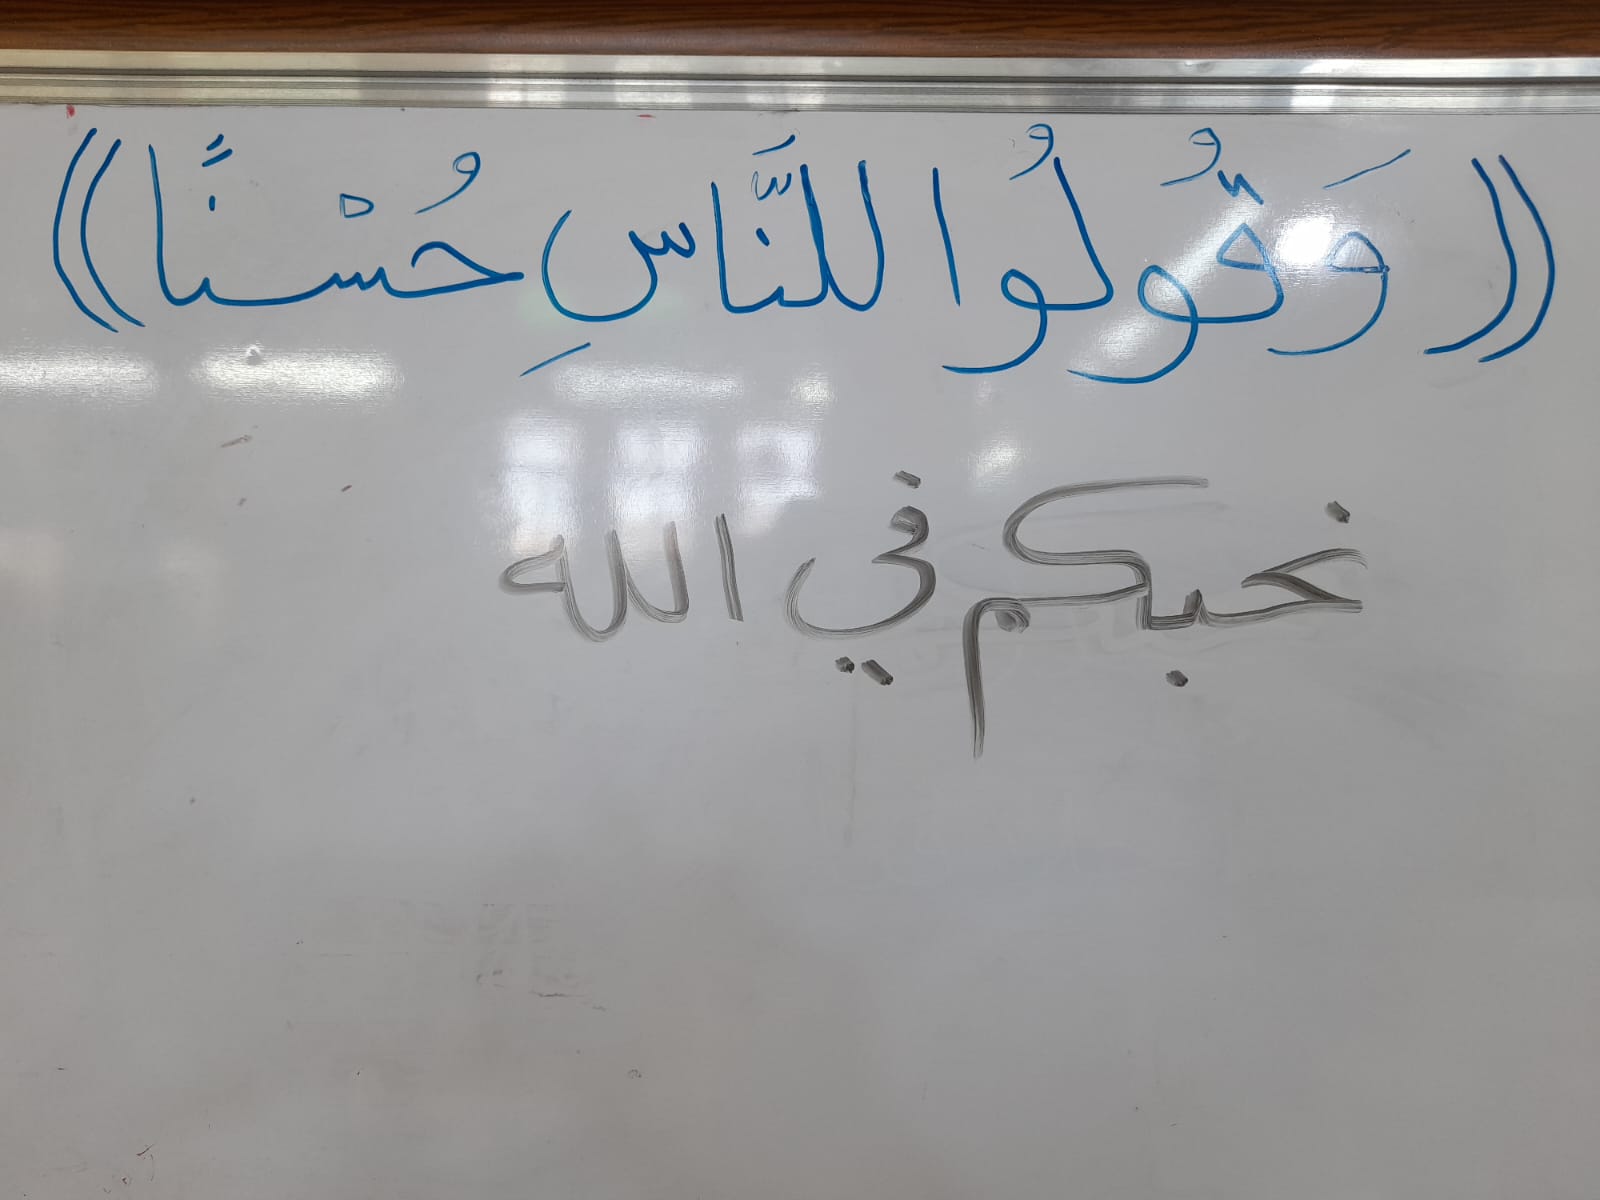 ((وَقُولُوا للنَّاسِ حُسْنًا))
نحبكم في الله